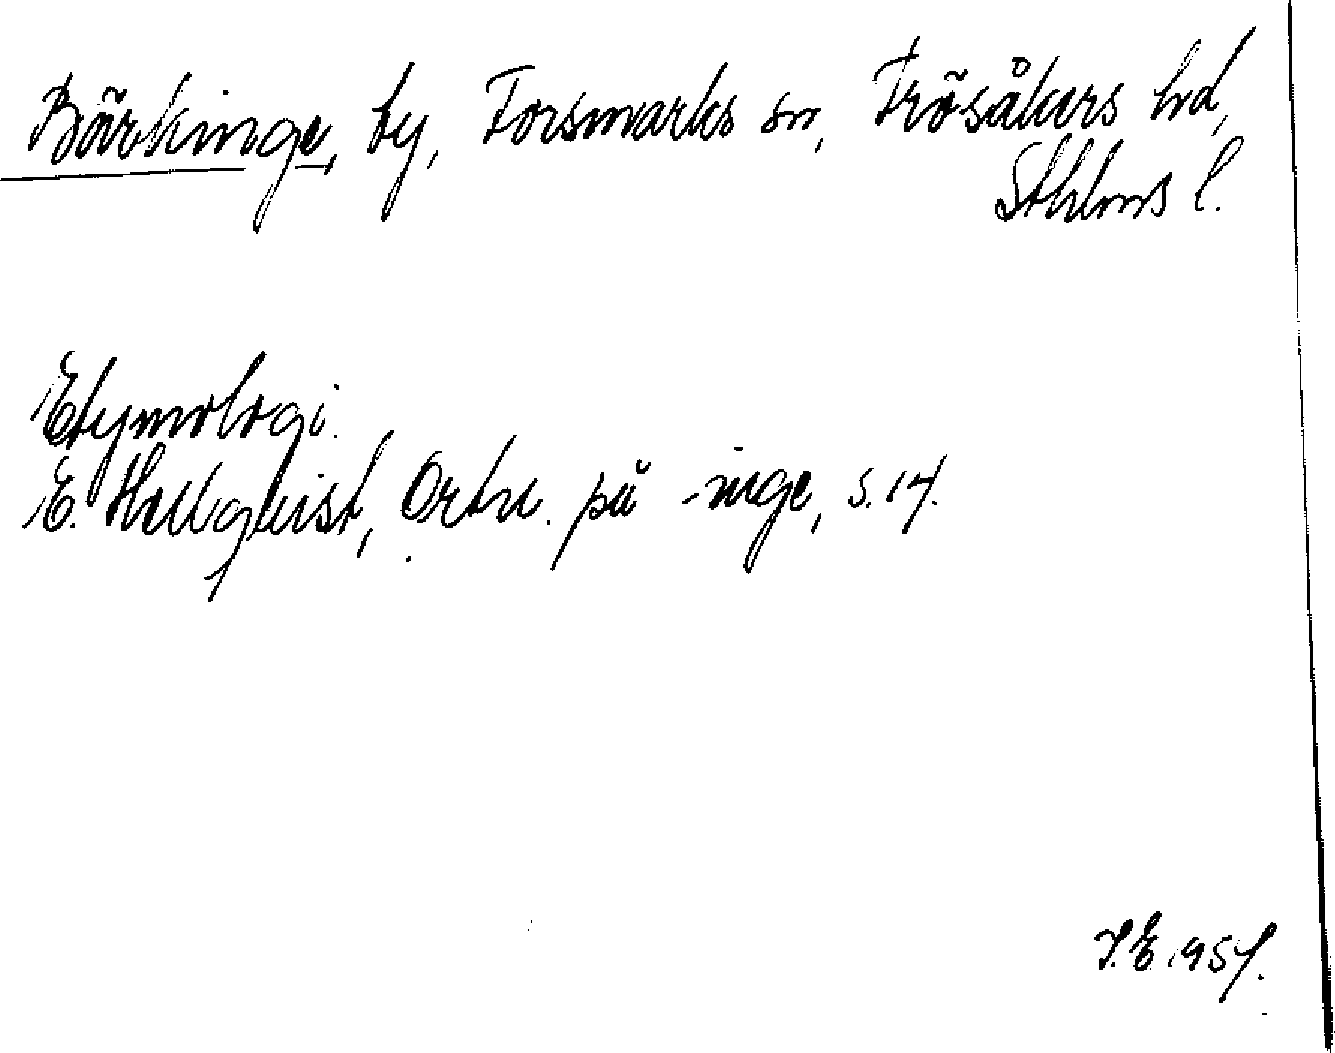 Bärkinge, by, Forsmarks sn, Frösåkers hd,
Sthlms l.
Etymologi.
E. Hellquist, Ortn. på -inge, s. 14.
J.E. 1957.